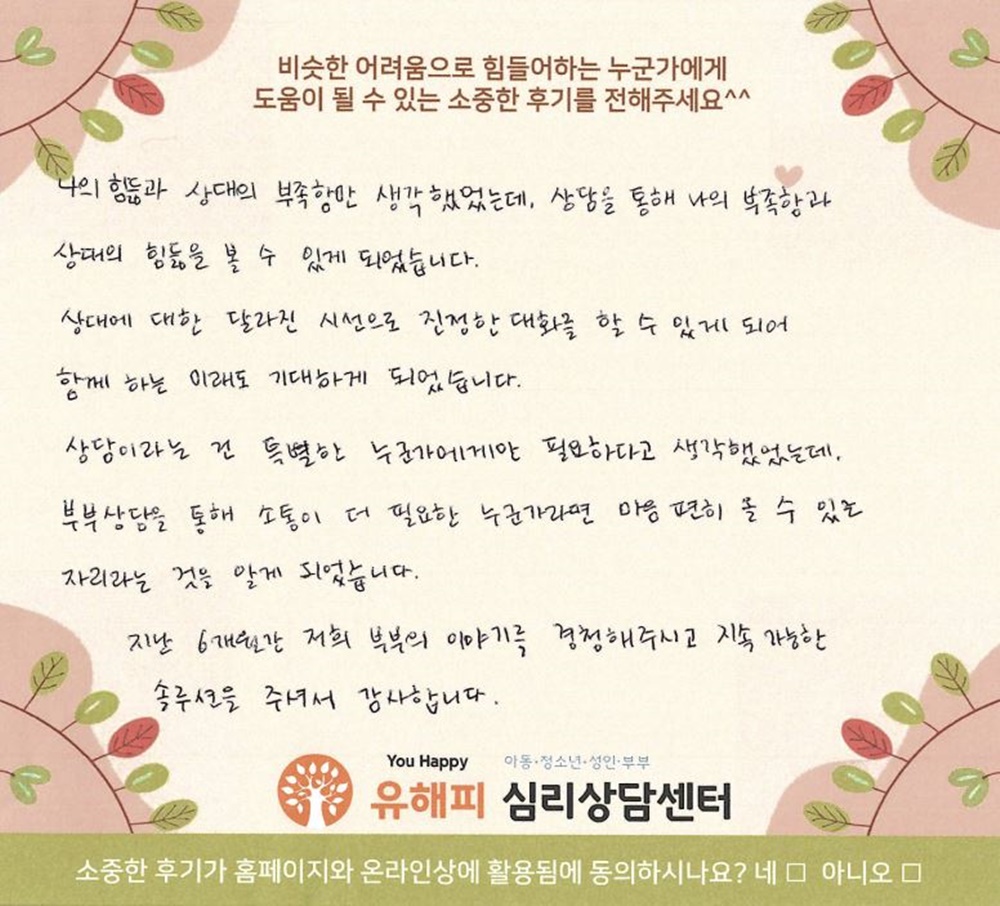 비슷한 어려움으로 힘들어하는 누군가에게
도움이 될 수 있는 소중한 후기를 전해주세요^^
나의 힘듦과 상대의 부족함만 생각했었는데, 상담을 통해 나의 부족함과
상대의 힘듦을 볼 수 있게 되었습니다.
상대에 대한 달라진 시선으로 진정한 대화를 할 수 있게 되어
함께 하는 미래도 기대하게 되었습니다.
상담이라는 건 특별한 누군가에게만 필요하다고 생각했었는데,
부부상담을 통해 소통이 더 필요한 누군가라면 마음 편히 올 수 있는
자리라는 것을 알게 되었습니다.
지난 6개월간 저희 부부의 이야기를 경청해주시고 지속 가능한
솔루션을 주셔서 감사합니다.
You Happy 아동·청소년·성인·부부
유해피 심리상담센터
소중한 후기가 홈페이지와 온라인상에 활용됨에 동의하시나요? 네 □ 아니오 □